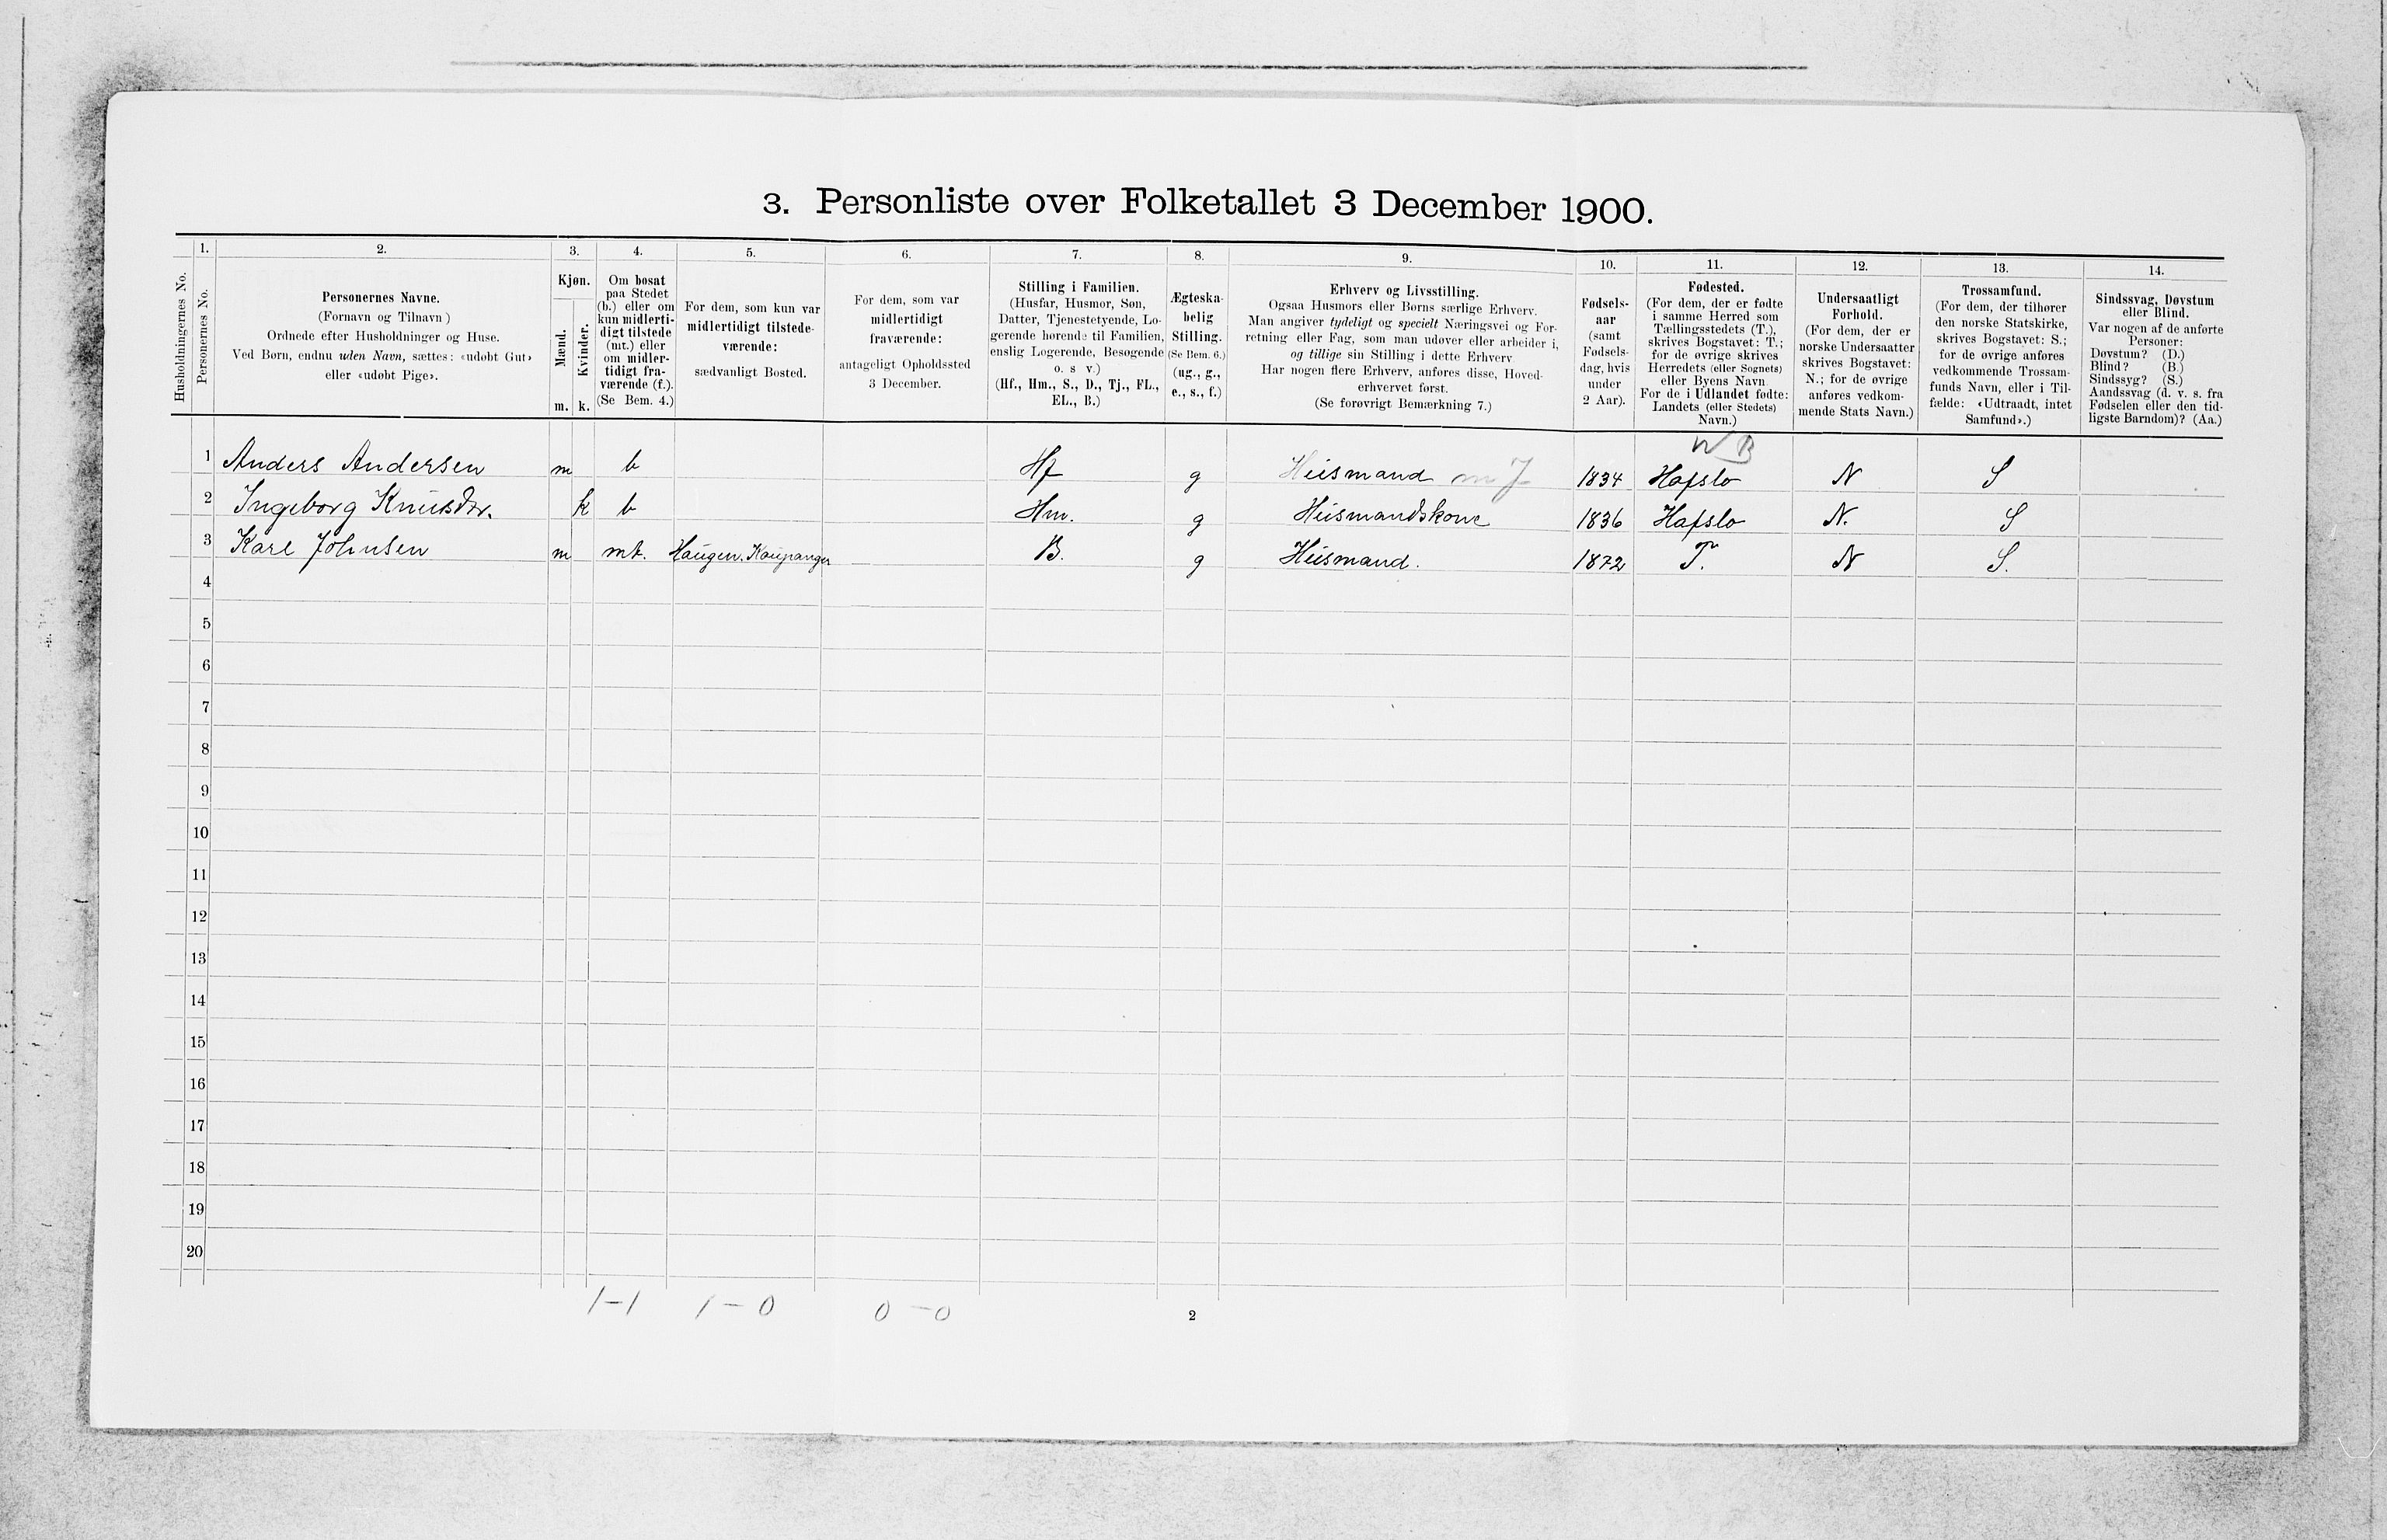 3. Personliste over Folketallet 3 December 1900.
1. 2. 3. 4. 5. 6. 7. 8. 9. 10. 11. 12. 13. 14.
Husholdningernes No.
Personernes No.
Personernes Navne.
(Fornavn og Tilnavn)
Ordnede efter Husholdninger og Huse.
Ved Børn, endnu uden Navn, sættes: «udøbt Gut»
eller «udøbt Pige».
Kjøn.
Mænd.
Kvinder.
m. k.
Om bosat
paa Stedet
(b.) eller om
kun midlerti-
digt tilstede
(mt.) eller
om midler-
tidigt fra-
værende (f.).
(Se Bem. 4.)
For dem, som kun var
midlertidigt tilstede-
værende:
sædvanligt Bosted.
For dem, som var
midlertidigt
fraværende:
antageligt Opholdssted
3 December.
Stilling i Familien.
(Husfar, Husmor, Søn,
Datter, Tjenestetyende, Lo-
gerende hørende til Familien,
enslig Logerende, Besøgende
o. s. v.)
(Hf., Hm., S., D., Tj., FL.,
EL., B.)
Ægteska-
belig
Stilling.
(Se Bem. 6.)
(ug., g.,
e., s., f.)
Erhverv og Livsstilling.
Ogsaa Husmors eller Børns særlige Erhverv.
Man angiver tydeligt og specielt Næringsvei og For-
retning eller Fag, som man udøver eller arbeider i,
og tillige sin Stilling i dette Erhverv.
Har nogen flere Erhverv, anføres disse, Hoved-
erhvervet først.
(Se forøvrigt Bemærkning 7.)
Fødsels-
aar
(samt
Fødsels-
dag, hvis
under
2 Aar).
Fødested.
(For dem, der er fødte
i samme Herred som
Tællingsstedets (T.),
skrives Bogstavet: T.;
for de øvrige skrives
Herredets (eller Sognets)
eller Byens Navn.
For de i Udlandet fødte:
Landets (eller Stedets)
Navn.)
Undersaatligt
Forhold.
(For dem, der er
norske Undersaatter
skrives Bogstavet:
N.; for de øvrige
anføres vedkom-
mende Stats Navn.)
Trossamfund.
(For dem, der tilhører
den norske Statskirke,
skrives Bogstavet: S.;
for de øvrige anføres
vedkommende Trossam-
funds Navn, eller i Til-
fælde: «Udtraadt, intet
Samfund».)
Sindssvag, Døvstum
eller Blind.
Var nogen af de anførte
Personer:
Døvstum? (D.)
Blind? (B.)
Sindssyg? (S.)
Aandssvag (d. v. s. fra
Fødselen eller den tid-
ligste Barndom)? (Aa.)
1 Anders Andersen m b Hf g Huismand m J 1834 Hafslo N S
2 Ingeborg Knuisdtr. k b Hm. g Huismandskone 1836 Hafslo N. S
3 Karl Johnsen m mt. Haugen. Kaupanger B. g Huismand. 1872 T. N S.
4
5
6
7
8
9
10
11
12
13
14
15
16
17
18
19
20
1-1 1-0 0-0
2